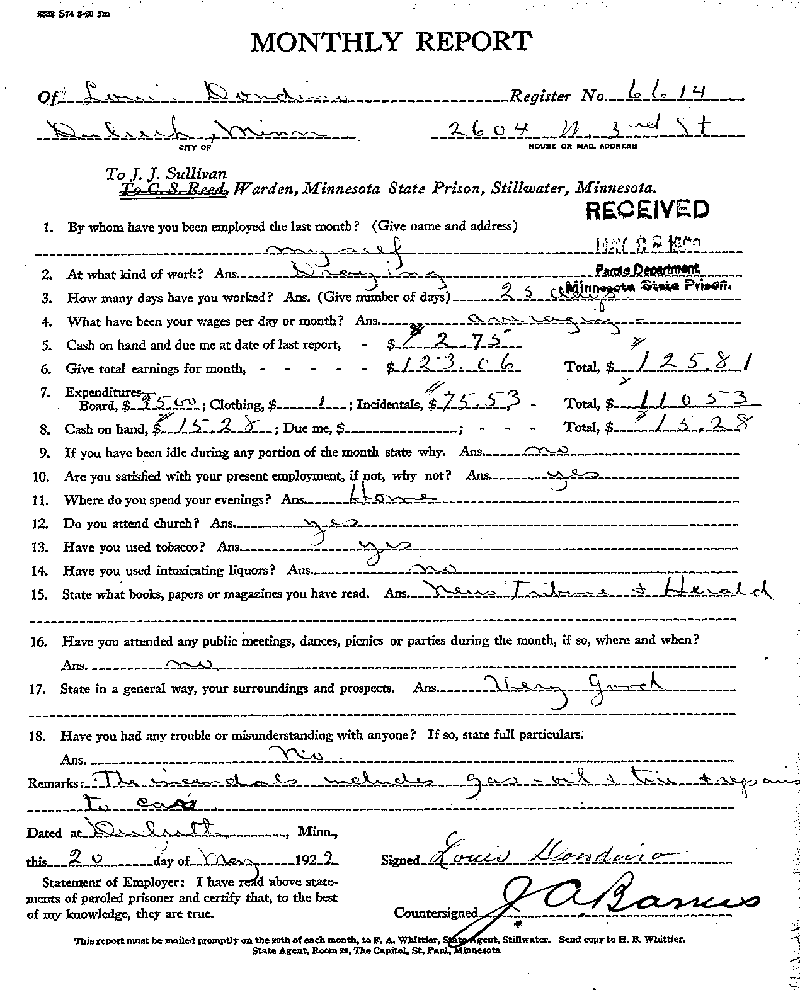 MONTHLY REPORT
Of Louis Dondino Register No. 6614
Duluth, Minn 2604 W. 3rd St
CITY OF HOUSE OR MAIL ADDRESS
To J. J. Sullivan
To C. S. Reed, Warden, Minnesota State Prison, Stillwater, Minnesota.
RECEIVED
1. By whom have you been employed the last month? (Give name and address)
myself
MAY 22
Parole Department
2. At what kind of work? Ans. Draying
Minnesota State Prison.
3. How many days have you worked? Ans. (Give number of days) 25 days
4. What have your been your wages per day or month? Ans. averaging
5. Cash on hand and due me at date of last report, - $ 2.75
6. Give total earnings for month, - - - - - $ 123.06 Total, $ 125.81
7. Expenditures—
Board, $ 35.00; Clothing, $ ; Incidentals, $ 75.53 - Total, $ 110.53
8. Cash on hand, $ 15.28; Due me, $ ; - - - Total, $ 15.28
9. If you have been idle during any portion of the month state why. Ans. no
10. Are you satisfied with your present employment, if not, why not? Ans. yes
11. Where do you spend your evenings? Ans. Home
12. Do you attend church? Ans. yes
13. Have you used tobacco? Ans. yes
14. Have you used intoxicating liquors? Ans. no
15. State what books, papers or magazines you have read. Ans. News Tribune & Herald
16. Have you attended any public meetings, dances, picnics or parties during the month, if so, where and when?
Ans. no
17. State in a general way, your surroundings and prospects. Ans. Very good
18. Have you had any trouble or misunderstanding with anyone? If so, state full particulars.
Ans. No
Remarks: The incendals includes gas - oil & tire & repairs
to cars
Dated at Duluth, Minn.,
this 20 day of May 1922 Signed Louis Dondino
Statement of Employer: I have read above state-
ments of paroled prisoner and certify that, to the best
of my knowledge, they are true. Countersigned J. A. Barnes
This report must be mailed promptly on the 20th of each month, to F. A. Whittier, State Agent, Stillwater. Send copy to H. B. Whittier,
State Agent, Room 28, The Capitol, St. Paul, Minnesota